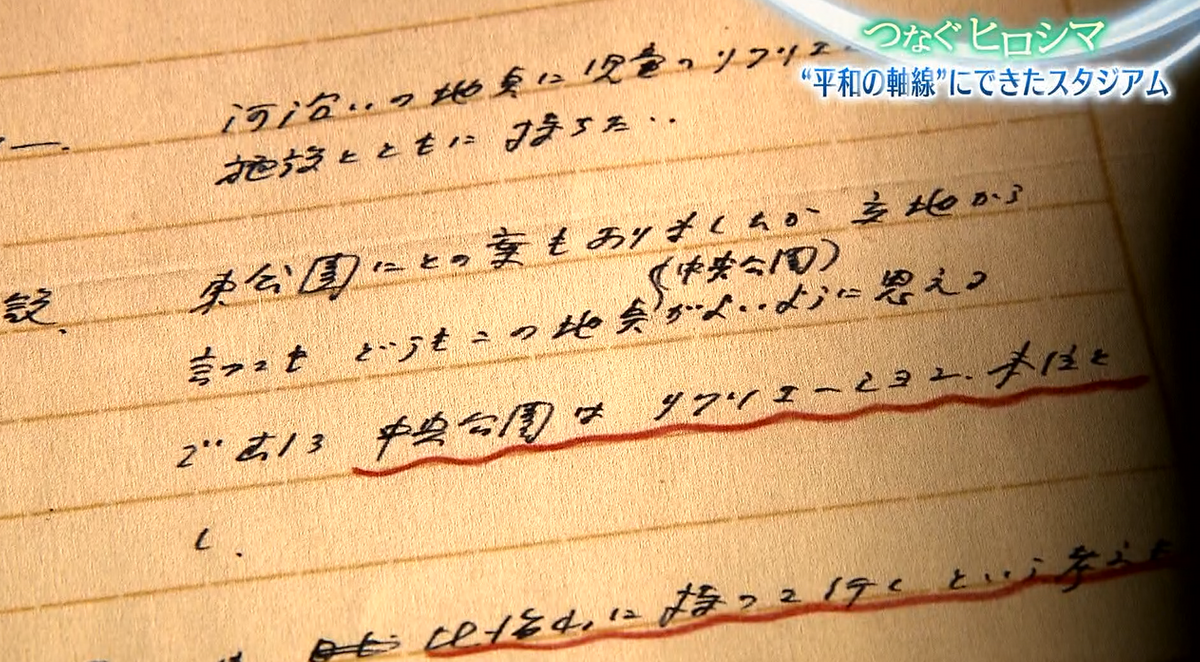 つなぐヒロシマ
“平和の軸線”にできたスタジアム
河沿いの地点に児童のリクリエ
施設とともに持ちたい
東公園にとの案もありましたが 立地から
(中央公園)
言っても どうもこの地点がよいように思える
設.
中央公園は リクリエーションを主体と
し.
比治山に持って行くという考えも